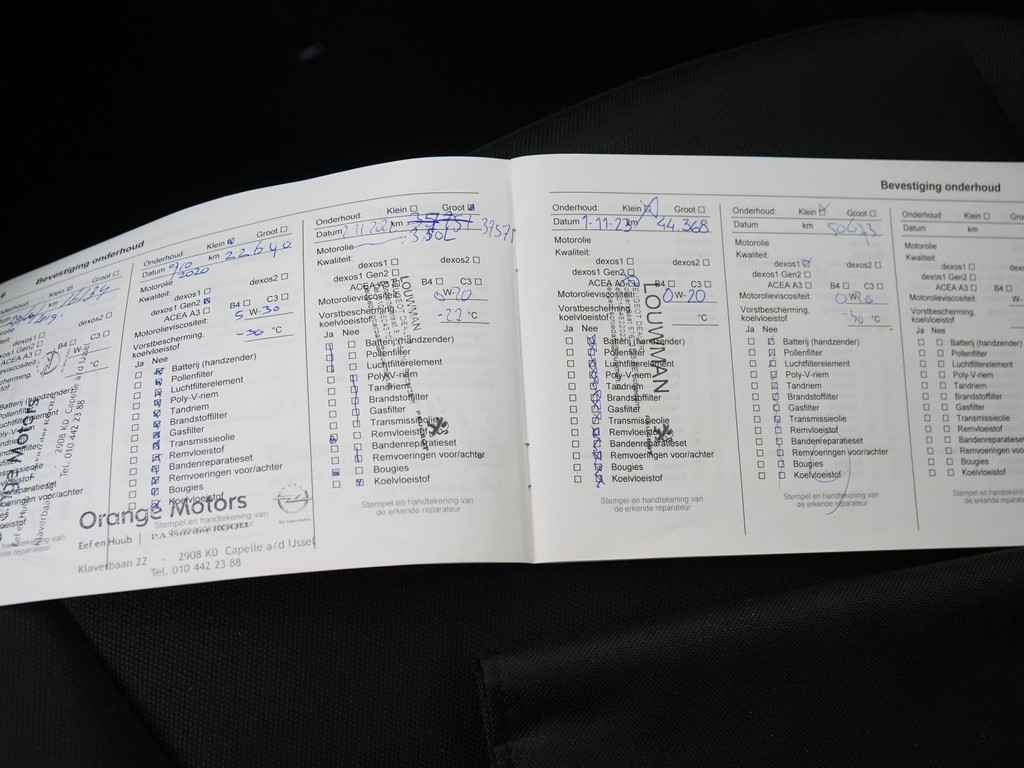 Bevestiging onderhoud
Groot
dexos2
C3
B4
°C
Batterij (handzender)
2908 KD Capelle a/d IJssel
Tel. 010 442 23 88
Klaverbaan
Onderhoud: Klein Groot
Datum 2020 km 22640
Motorolie
Kwaliteit: dexos2
dexos1
dexos1 Gen2
ACEA A3 B4 C3
Motorolieviscositeit: 5 W-30
Vorstbescherming. -30 °C
koelvloeistof:
Ja Nee
Batterij (handzender)
Pollenfilter
Luchtfilterelement
Poly-V-riem
Tandriem
Brandstoffilter
Gasfilter
Transmissieolie
Remvloeistof
Bandenreparatieset
Remvoeringen voor/achter
Bougies
Koelvloeistof
Stempel en handtekening van
Orange Motors
Eef en Huub
Klaverbaan 22 - 2908 KD Capelle a/d IJssel
Tel. 010 442 23 88
Onderhoud: Klein Groot
Datum km
Motorolie
Kwaliteit: dexos2
dexos1
dexos1 Gen2
ACEA A3 B4 C3
Motorolieviscositeit: W-20
Vorstbescherming. -22 °C
koelvloeistof:
Ja Nee
Batterij (handzender)
Pollenfilter
Luchtfilterelement
Poly-V-riem
Tandriem
Brandstoffilter
Gasfilter
Transmissieolie
Remvloeistof
Bandenreparatieset
Remvoeringen voor/achter
Bougies
Koelvloeistof
LOUWMAN
Stempel en handtekening van
de erkende reparateur
Bevestiging onderhoud
Onderhoud: Klein Groot
Datum 1-11-23 km 44.368
Motorolie
Kwaliteit:
dexos1 dexos2
dexos1 Gen2
ACEA A3 B4 C3
Motorolieviscositeit: 0 W-20
Vorstbescherming.
koelvloeistof: °C
Ja Nee
Batterij (handzender)
Pollenfilter
Luchtfilterelement
Poly-V-riem
Tandriem
Brandstoffilter
Gasfilter
Transmissieolie
Remvloeistof
Bandenreparatieset
Remvoeringen voor/achter
Bougies
Koelvloeistof
LOUWMAN
Stempel en handtekening van
de erkende reparateur
Onderhoud: Klein Groot
Datum km 50673
Motorolie
Kwaliteit:
dexos1 dexos2
dexos1 Gen2
ACEA A3 B4 C3
Motorolieviscositeit:
Vorstbescherming.
koelvloeistof: °C
Ja Nee
Batterij (handzender)
Pollenfilter
Luchtfilterelement
Poly-V-riem
Tandriem
Brandstoffilter
Gasfilter
Transmissieolie
Remvloeistof
Bandenreparatieset
Remvoeringen voor/achter
Bougies
Koelvloeistof
Stempel en handtekening van
de erkende reparateur
Onderhoud: Klein
Datum km
Motorolie
Kwaliteit:
dexos1
dexos1 Gen2
ACEA A3
Motorolieviscositeit:
Vorstbescherming.
koelvloeistof:
Ja Nee
Batterij (handzender)
Pollenfilter
Luchtfilterelement
Poly-V-riem
Tandriem
Brandstoffilter
Gasfilter
Transmissieolie
Remvloeistof
Bandenreparatieset
Remvoeringen voor/achter
Bougies
Koelvloeistof